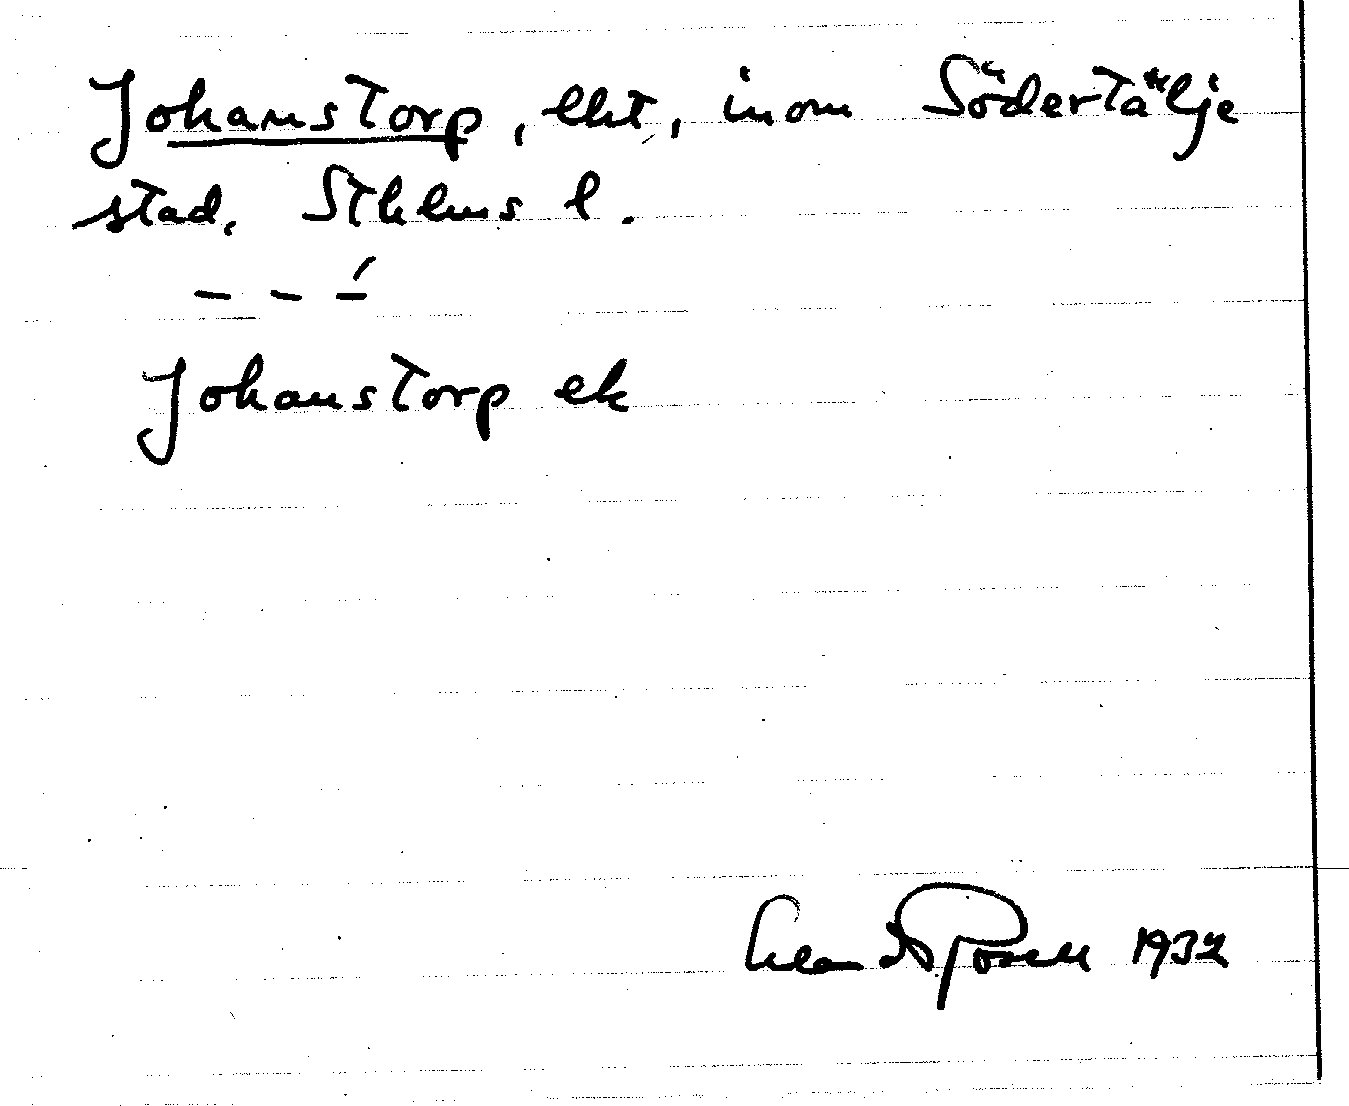 Johanstorp, lht, inom Södertälje
stad. Sthlms l.
Johanstorp ek
1932